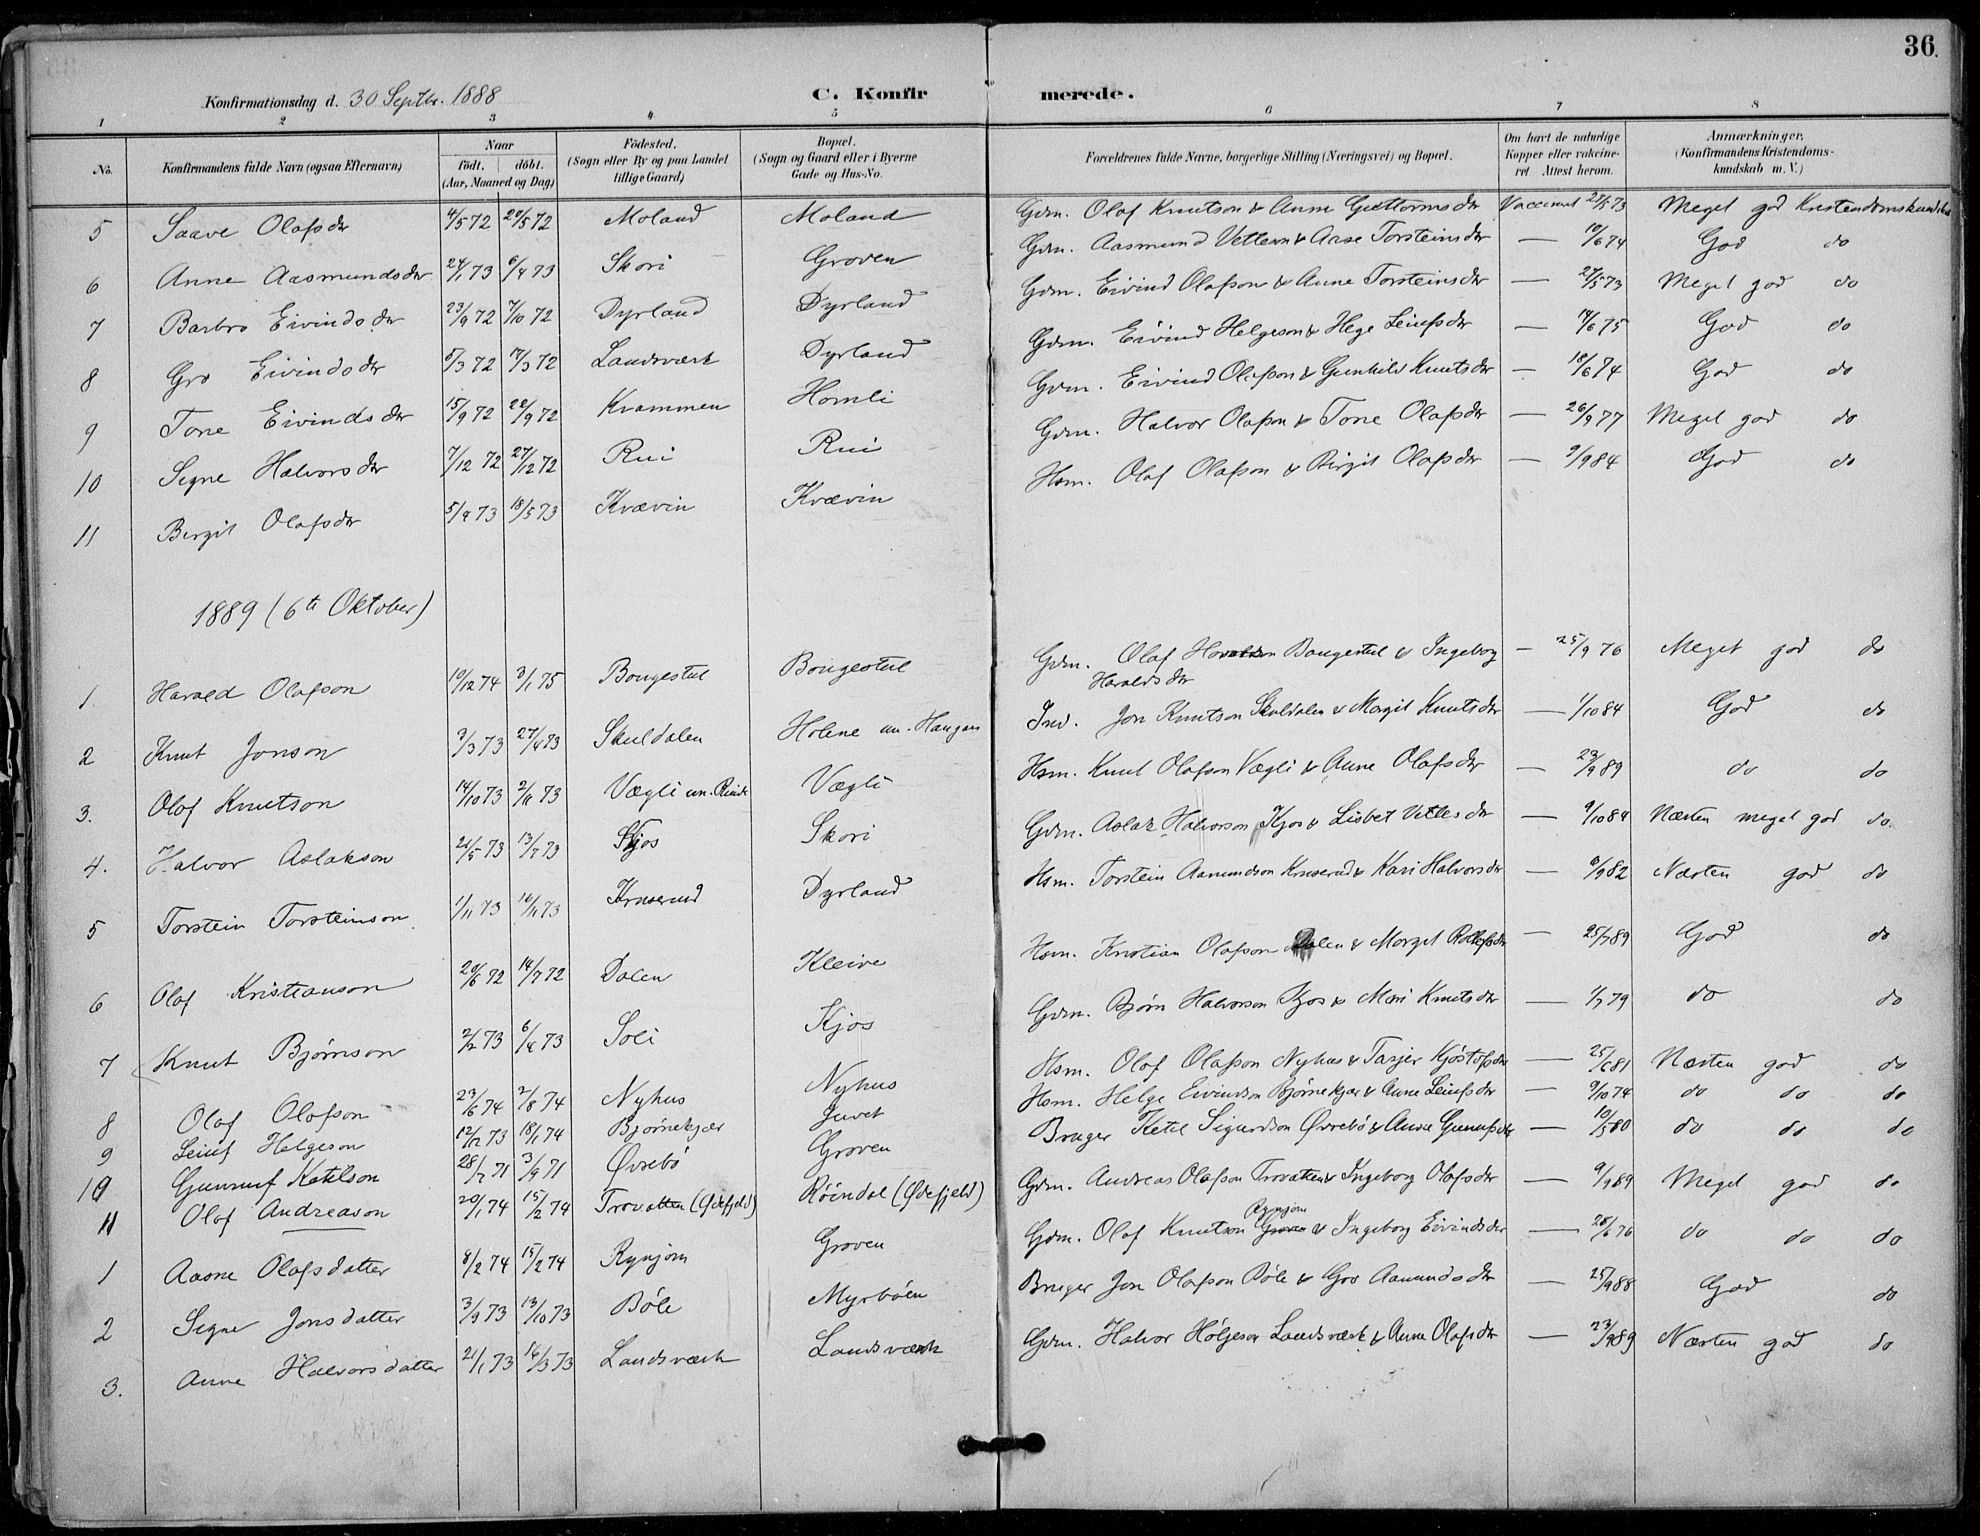 36.
Konfirmationsdag d. 30 Septbr. 1888
C. Konfirmerede.
1 2 3 4 5 6 7 8
No. Konfirmandens fulde Navn (ogsaa Efternavn) Naar födt. döbt. (Aar, Maaned og Dag) Födested. (Sogn eller By og paa Landet tillige Gaard) Bopæl. (Sogn og Gaard eller i Byerne Gade og Hus-No. Forældrenes fulde Navne, borgerlige Stilling (Næringsvei) og Bopæl. Om havt de naturlige Kopper eller vakcineret Attest herom. Anmærkninger. (Konfirmandens Kristendomskundskab m. V.)
5 Saave Olafsdr 4/5 72 22/5 72 Moland Moland Gdm. Olaf Knutson & Anne Guttormsdr Vaccineret 27/5 73 Meget god Kristendomskundskab
6 Anne Aasmundsdr 24/1 73 6/4 73 Skori Groven Gdm. Aasmund Vetleson & Aase Torsteinsdr — 10/6 74 God do
7 Barbro Eivindsdr 23/9 72 7/10 72 Dyrland Dyrland Gdm. Eivind Olafson & Anne Torsteinsdr — 27/5 73 Meget god do
8 Gro Eivindsdr 5/3 72 17/3 72 Landsværk Dyrland Gdm. Eivind Helgeson & Hege Leiufsdr — 14/6 75 God do
9 Tone Eivindsdr 15/9 72 22/9 72 Krammen Homli Gdm. Eivind Olafson & Gunhild Knutsdr — 18/6 74 God do
10 Signe Halvorsdr 7/12 72 27/12 72 Rui Rui Gdm. Halvor Olafson & Tone Olafsdr — 26/9 77 Meget god do
11 Birgit Olafsdr 5/4 73 18/5 73 Kvævin Kvævin Hsm. Olaf Olafson & Birgit Olafsdr — 9/9 84 God do
1889 (6te Oktober)
1 Harald Olafson 10/12 74 3/1 75 Bongestul Bongestul Gdm. Olaf Bongestul & Ingeborg Haraldsdr — 25/9 76 Meget god do
2 Knut Jonson 9/3 73 27/4 73 Skuldalen Holene un. Haugan Ind. Jon Knutson Skuldalen & Margit Knutsdr — 1/10 84 God do
3. Olaf Knutson 14/10 73 2/11 73 Vægli un. Vægli Hsm. Knut Olafson Vægli & Anne Olafsdr — 29/9 89 do do
4. Halvor Aslakson 21/5 73 13/7 73 Kjos Skori Gdm. Aslak Halvorson Kjos & Lisbet Vetlesdr — 9/10 84 Næsten meget god do.
5 Torstein Torsteinson 1/11 73 16/11 73 Kruserud Dyrland Hsm. Torstein Aamundson Kruserud & Kari Halvorsdr — 9/9 82 Næsten god do
6 Olaf Kristianson 20/6 72 14/7 72 Dalen Kleive Hsm. Kristian Olafson Dalen & Margit — 25/7 89 God do
7 Knut Bjørnson 2/2 73 6/4 73 Soli Kjos Gdm. Bjørn Halvorson Kjos & Mari Knutsdr — 1/7 79 do do
8 Olaf Olafson 23/6 74 2/8 74 Nyhus Nyhus Hsm. Olaf Olafson Nyhus & Tarjer Kjöstofsdr — 25/6 81 Næsten god do
9 Leiuf Helgeson 12/12 73 18/1 74 Bjørnekjær Juvet Hsm. Helge Eivindson Bjørnekjær & Anne Leiufsdr — 9/10 74 do do do
10 Gunnuf Ketilson 28/7 71 3/9 71 Øvrebö Groven Bruger Ketil Sigurdson Øvrebö & Anne Gunnufsdr — 10/5 80 do do do
11 Olaf Andreason 20/1 74 15/2 74 Trovatten (Ødefjeld) Röindal (Ødefjeld) Gdm. Andreas Olafson Trovatten & Ingeborg Olafsdr — 9/9 89 Meget god do
1 Aasne Olafsdatter 8/2 74 15/2 74 Rynjom Groven Gdm. Olaf Knutson Rynjom & Ingeborg Eivindsdr — 28/6 76 do do do
2 Signe Jonsdatter 3/9 73 13/10 73 Böle Myrböen Bruger Jon Olafson Böle & Gro Aamundsdr — 25/9 88 God do
3. Anne Halvorsdatter 21/1 73 16/3 73 Landsværk Landsværk Gdm. Halvor Höljeson Landsværk & Anne Olafsdr — 23/9 89 Næsten god do